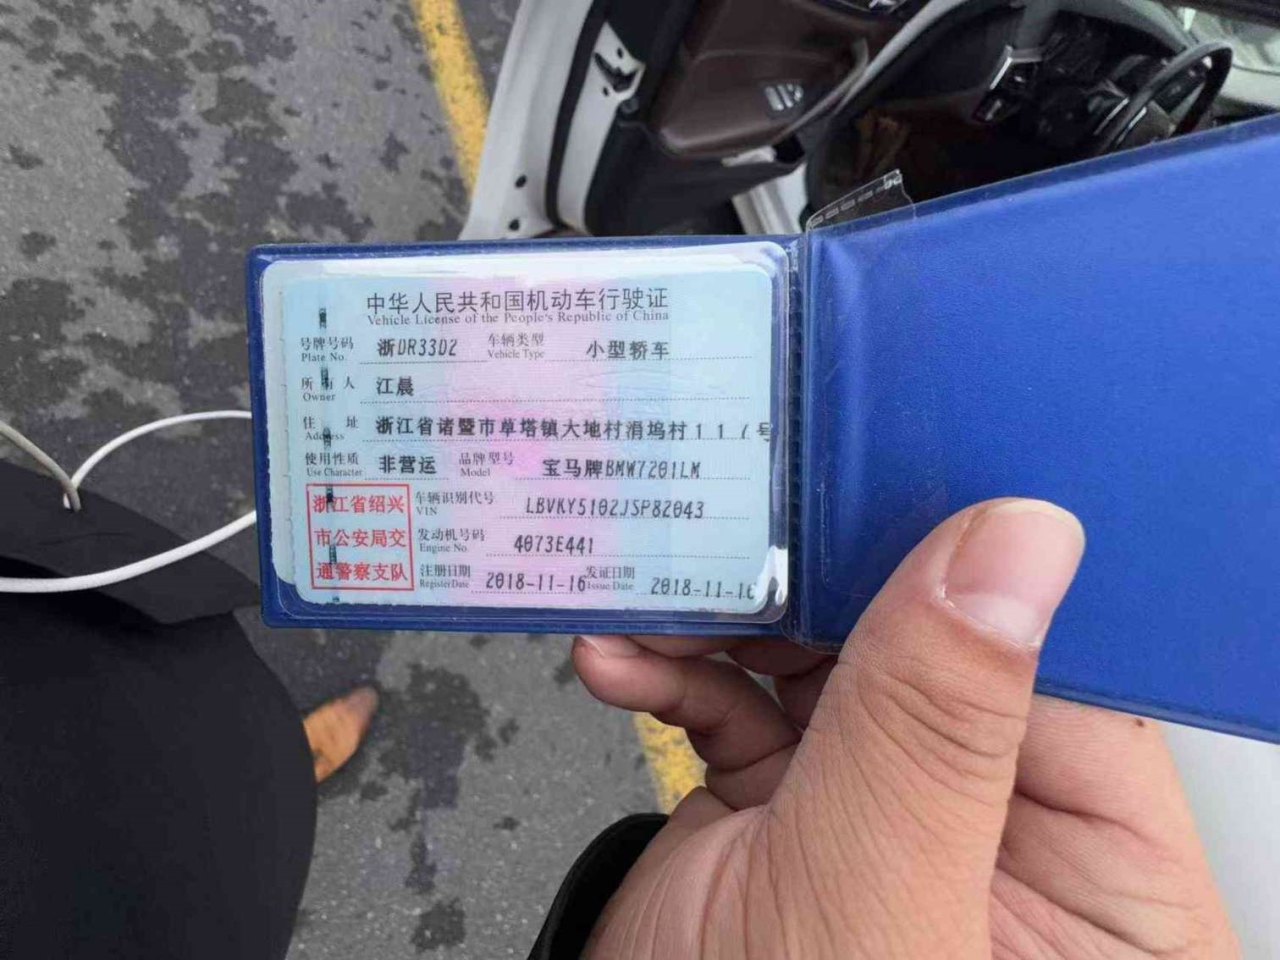 中华人民共和国机动车行驶证
Vehicle License of the People's Republic of China
号牌号码 浙DR33D2 车辆类型 小型轿车
Plate No. Vehicle Type
所有人 江晨
Owner
住址 浙江省诸暨市草塔镇大地村涓坞村117号
Address
使用性质 非营运 品牌型号 宝马牌BMW7201LM
Use Character Model
浙江省绍兴 车辆识别代号 LBVKY5102JSP82043
VIN
市公安局交 发动机号码 4073E441
Engine No.
通警察支队 注册日期 2018-11-16 发证日期 2018-11-16
Register Date Issue Date